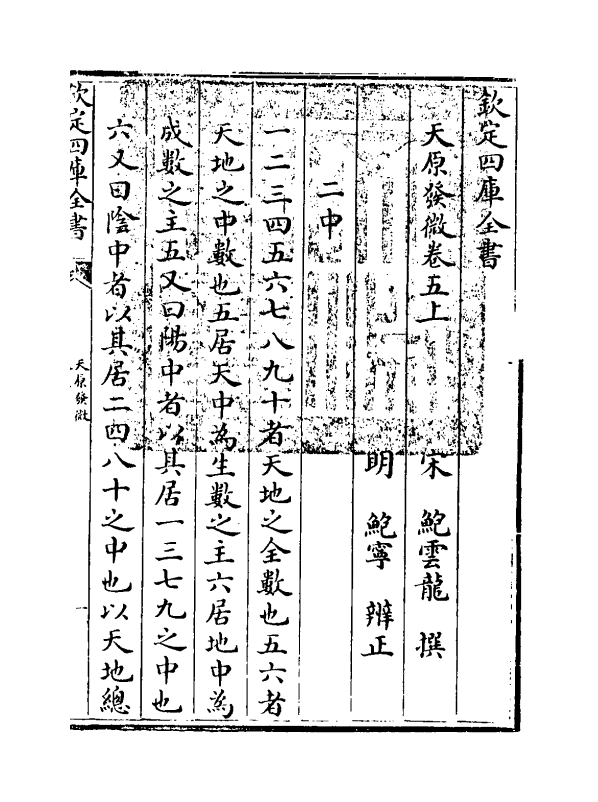 欽定四庫全書
天原發微卷五上
宋 鮑雲龍 撰
明 鮑寧 辨正
二中
一二三四五六七八九十者天地之全數也五六者
天地之中數也五居天中為生數之主六居地中為
成數之主五又曰陽中者以其居一三七九之中也
六又曰陰中者以其居二四八十之中也以天地總
欽定四庫全書
天原發微
一